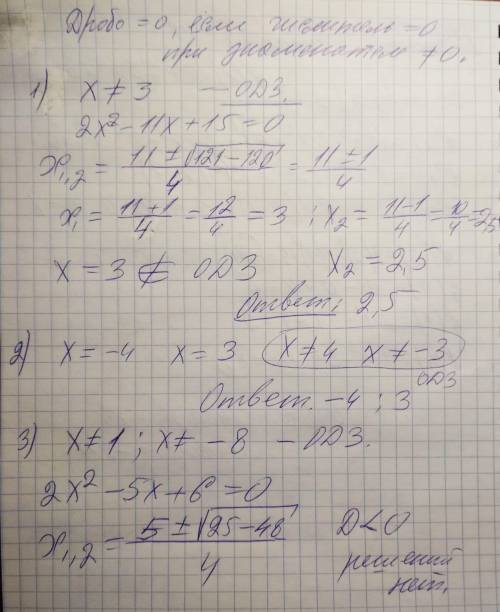 Дробь = 0, если числитель = 0
при знаменателе ≠ 0.
1) x ≠ 3 — ОДЗ.
2x² - 11x + 15 = 0
x₁,₂ = (11 ± √(121 - 120))/4 = (11 ± 1)/4
x₁ = (11 + 1)/4 = 12/4 = 3 ; x₂ = (11 - 1)/4 = 10/4 = 2,5
x = 3 ∉ ОДЗ x₂ = 2,5
Ответ: 2,5
2) x = -4 x = 3 x ≠ 4 x ≠ -3
ОДЗ
Ответ. -4 ; 3
3) x ≠ 1 ; x ≠ -8 — ОДЗ.
2x² - 5x + 6 = 0
x₁,₂ = (5 ± √(25 - 48))/4 D < 0
решений
нет.